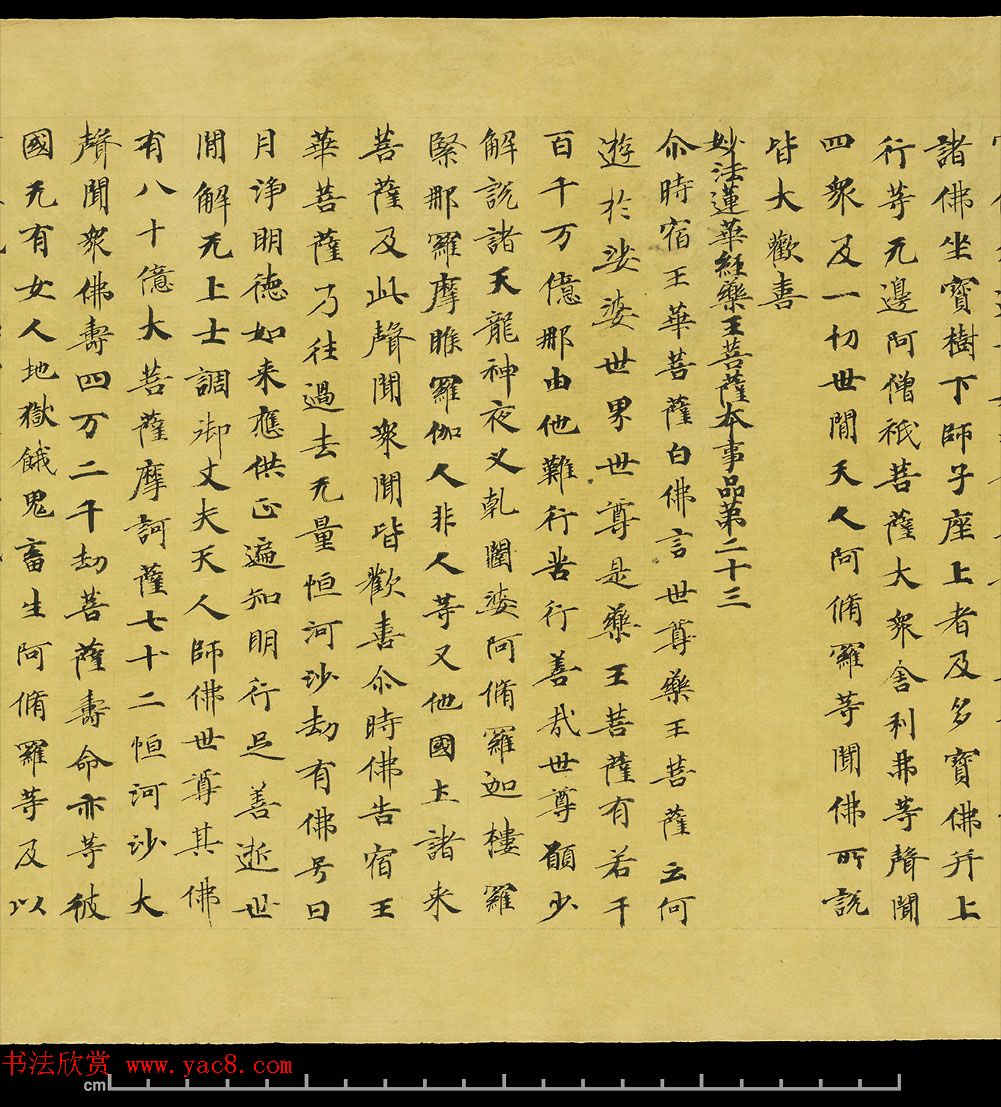 諸佛坐寶樹下師子座上者及多寶佛并上
行等无邊阿僧祇菩薩大衆舍利弗等聲聞
四衆及一切世間天人阿脩羅等聞佛所說
皆大歡喜
妙法蓮華經藥王菩薩本事品第二十三
尒時宿王華菩薩白佛言世尊藥王菩薩云何
遊於娑婆世界世尊是藥王菩薩有若干
百千万億那由他難行苦行善哉世尊願少
解說諸天龍神夜叉乾闥婆阿脩羅迦樓羅
緊那羅摩睺羅伽人非人等又他國土諸来
菩薩及此聲聞衆聞皆歡喜尒時佛告宿王
華菩薩乃往過去无量恒河沙劫有佛号日
月淨明德如来應供正遍知明行足善逝世
間解无上士調御丈夫天人師佛世尊其佛
有八十億大菩薩摩訶薩七十二恒河沙大
聲聞衆佛壽四万二千劫菩薩壽命亦等彼
國无有女人地獄餓鬼畜生阿脩羅等及以
书法欣赏 www.yac8.com
cm